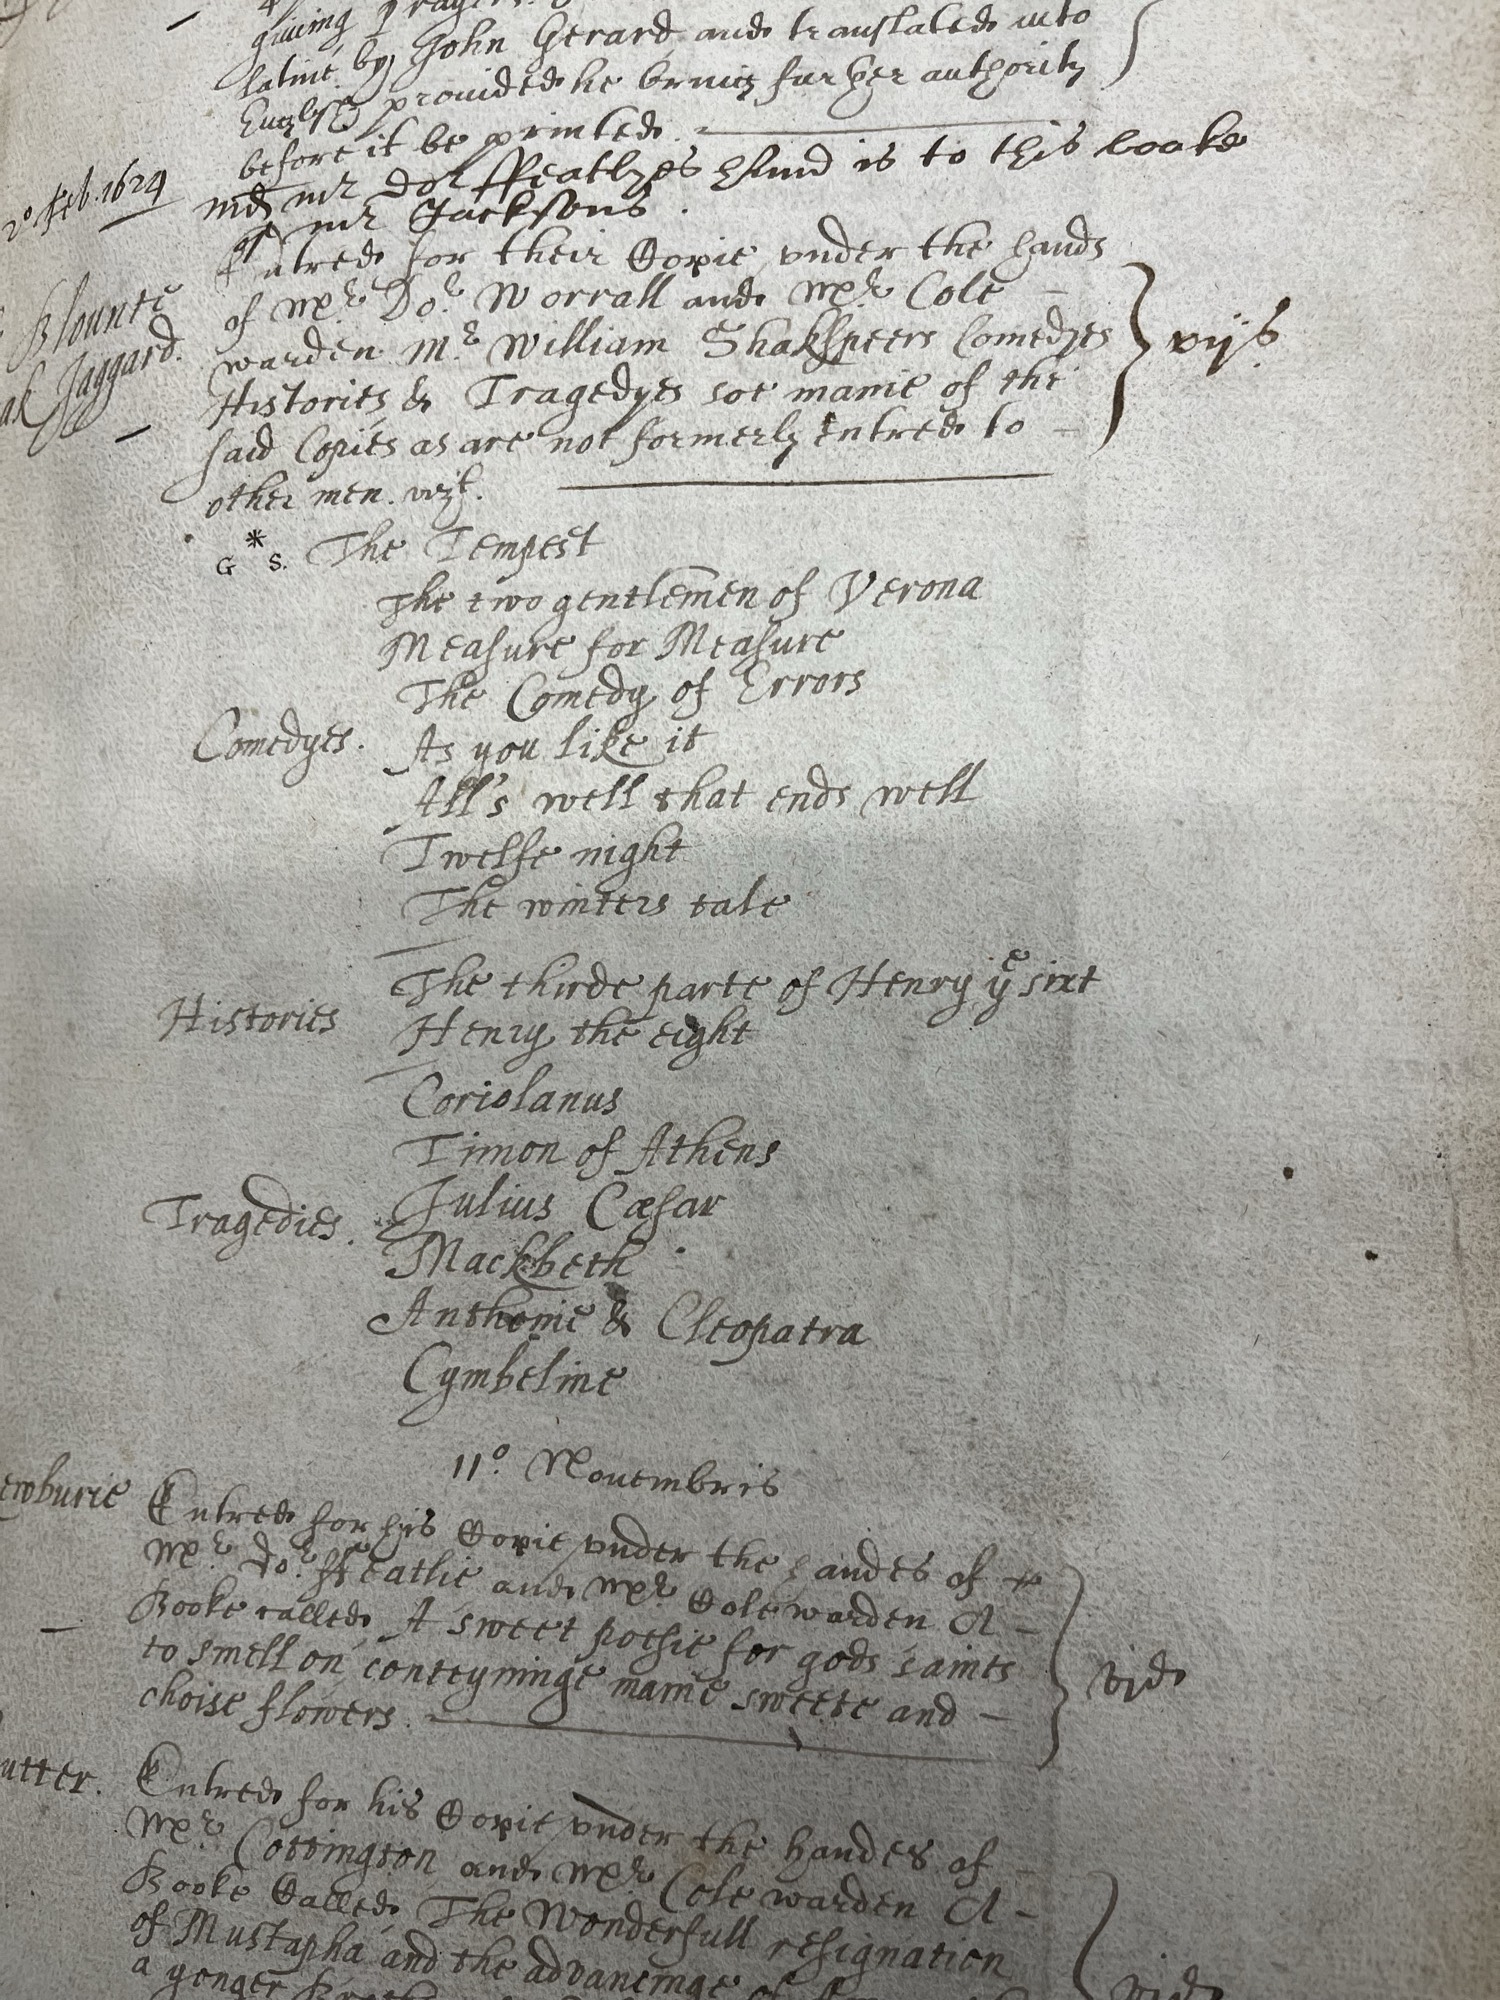 giuing prayers.
latine by John Gerard and translated into
English prouided he bring further authority
before it be printed.
2º Feb. 1624
md mr dor ffeatlyes hand is to this booke
& mr Jacksons.
Blounte
Jaggard.
Entred for their Copie vnder the hands
of Mr. Dor. Worrall and Mr. Cole –
warden Mr. William Shakspeers Comedyes
Histories & Tragedyes soe manie of the
said Copies as are not formerly entred to –
other men. vizt.
vijs
G * S. The Tempest
The two gentlemen of Verona
Measure for Measure
The Comedy of Errors
Comedyes. As you like it
All's well that ends well
Twelfe night
The winters tale
The thirde parte of Henry ye sixt
Histories Henry the eight
Coriolanus
Timon of Athens
Tragedies. Julius Cæsar
Mackbeth
Anthonie & Cleopatra
Cymbeline
11º. Nouembris
ewburie Entred for his Copie vnder the handes of
Mr. Dor. ffeatlie and Mr. Cole warden A –
Booke called A sweet posie for gods saints
to smell on conteyninge manie sweete and –
choise flowers.
vjd
utter. Entred for his Copie vnder the handes of –
Mr. Cottington and Mr. Cole warden A –
Booke Called, The Wonderfull resignation
of Mustapha and the advancinge of
a yonger
vjd